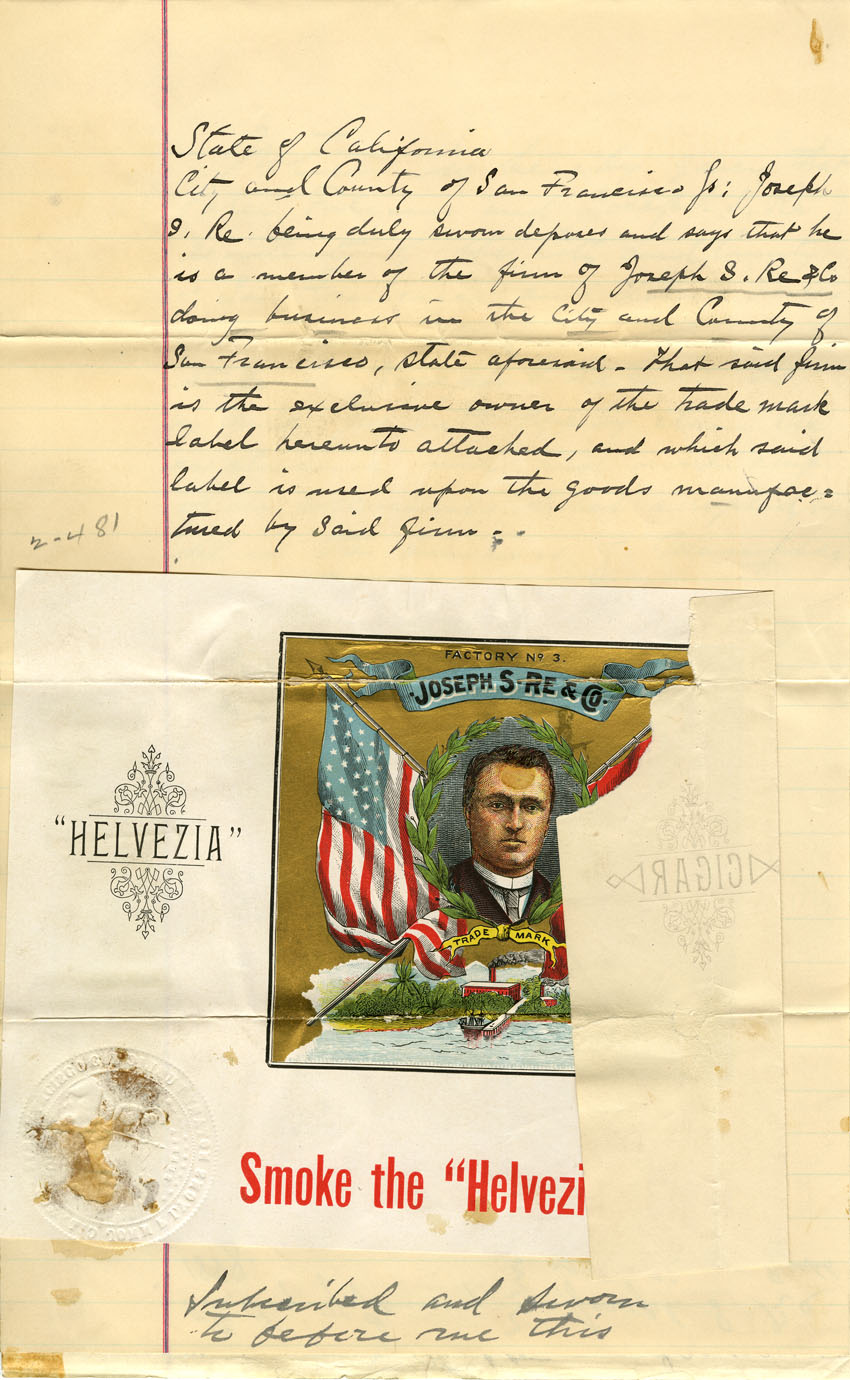 State of California
City and County of San Francisco ss: Joseph
S. Re. being duly sworn deposes and says that he
is a member of the firm of Joseph S. Re & Co
doing business in the City and County of
San Francisco, state aforesaid - that said firm
is the exclusive owner of the trade mark
label hereunto attached, and which said
label is used upon the goods manufac=
tured by said firm -
2-481
FACTORY Nº 3.
·JOSEPH S·RE & CO·
"HELVEZIA"
CIGAR
TRADE MARK
Smoke the "Helvezi
Subscribed and sworn
to before me this